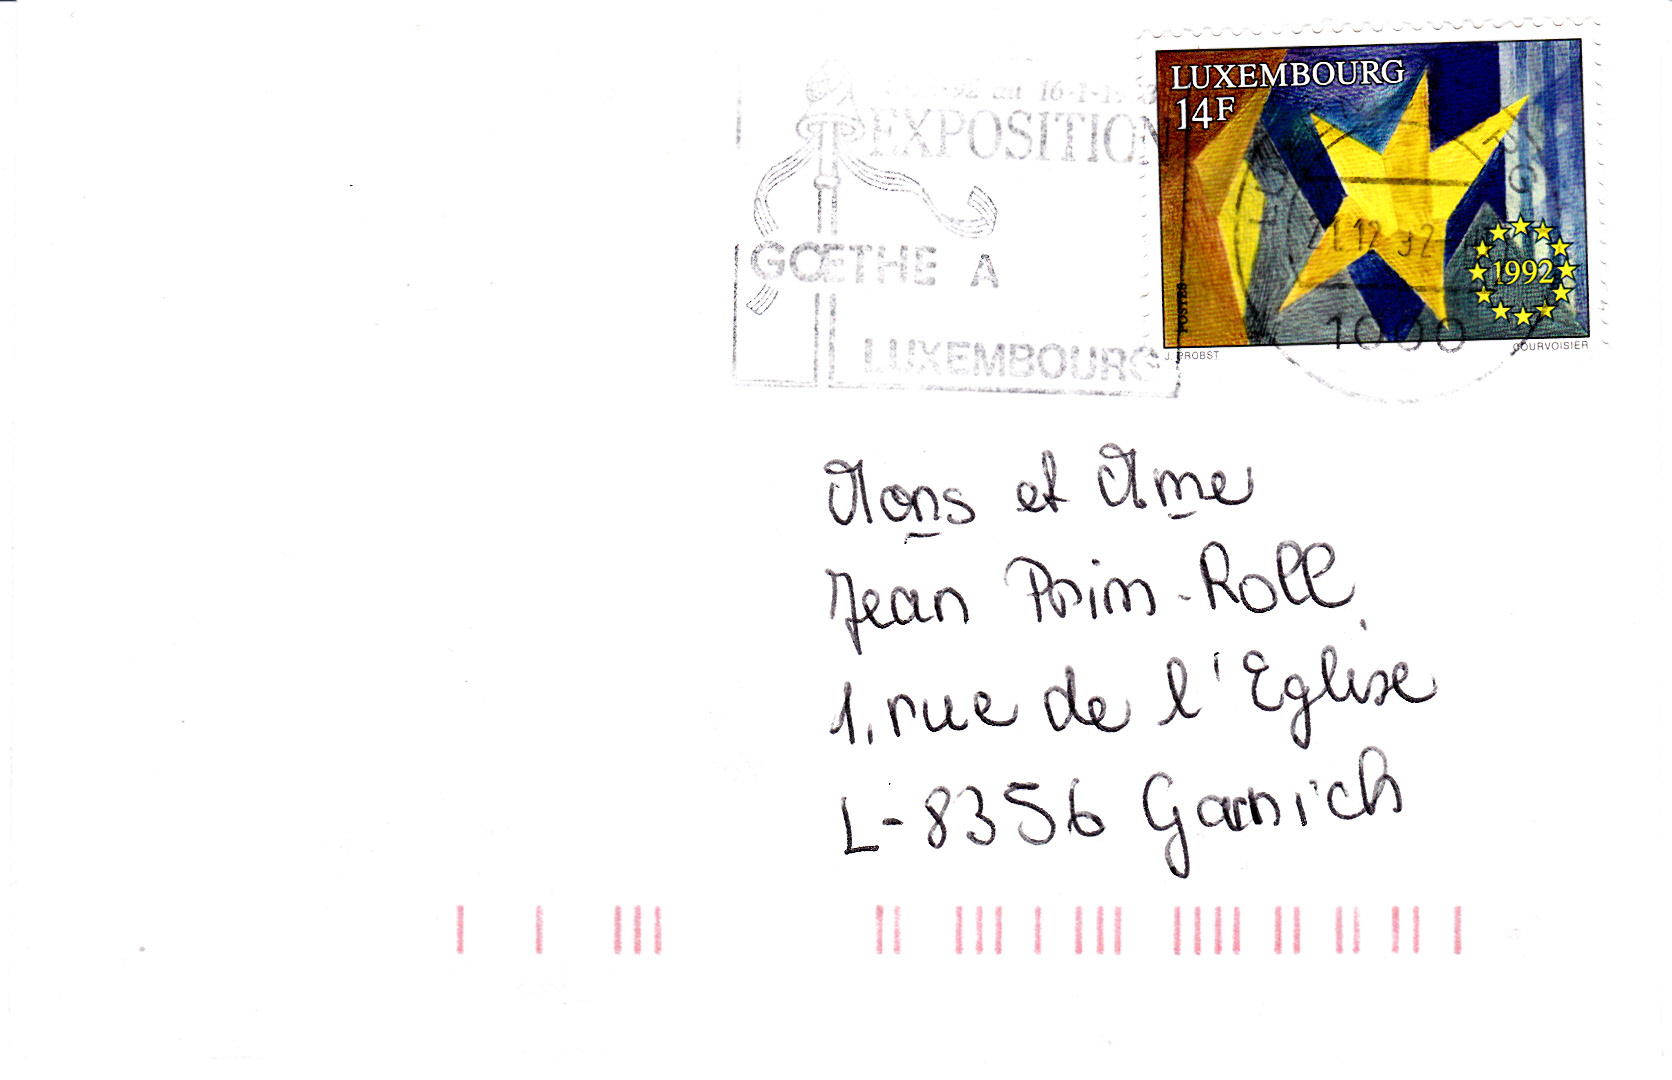 LUXEMBOURG
14F
1992
POSTES
J. PROBST
COURVOISIER
92 au 16-1-
EXPOSITION
GŒTHE A
LUXEMBOURG
21.12 92
1000
Mons et Mme
Jean Prim-Roll
1, rue de l'Eglise
L-8356 Garnich